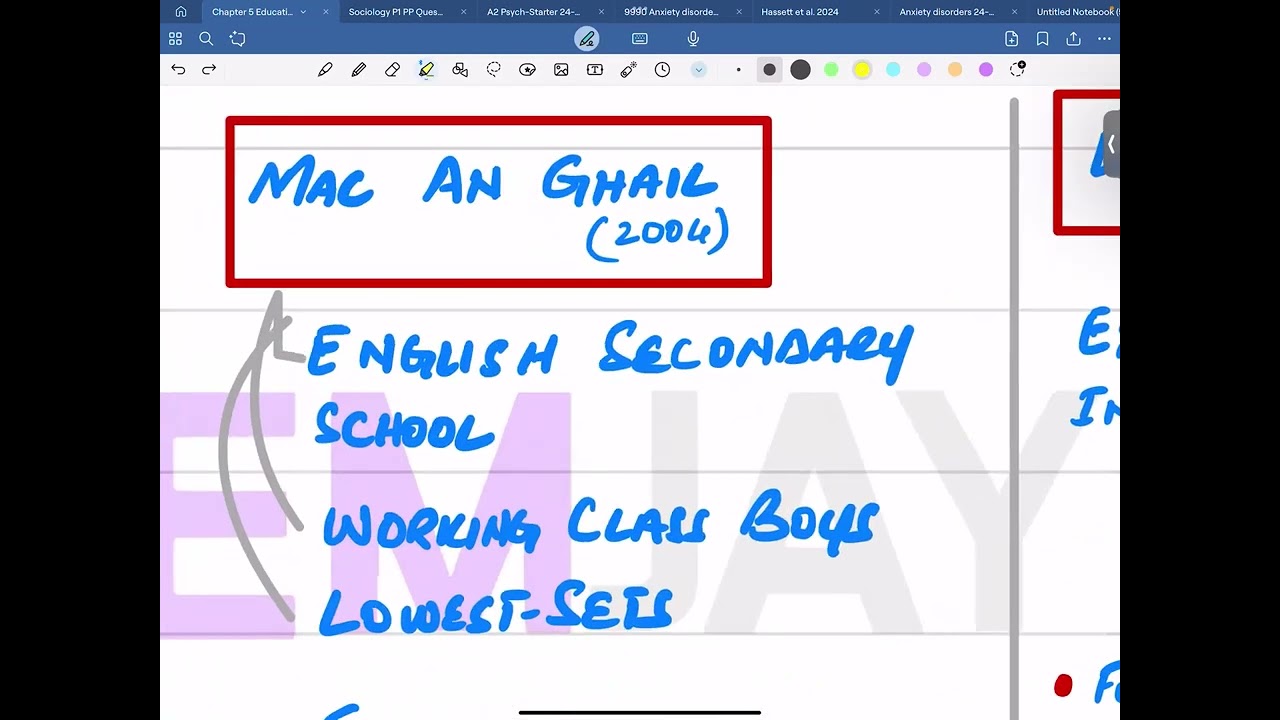 Chapter 5 Educati...
Sociology P1 PP Ques...
A2 Psych-Starter 24-...
9990 Anxiety disorde...
Hassett et al. 2024
Anxiety disorders 24-...
Untitled Notebook (
MAC AN GHAIL
(2004)
ENGLISH SECONDARY
SCHOOL
WORKING CLASS BOYS
LOWEST-SETS
EMJAY